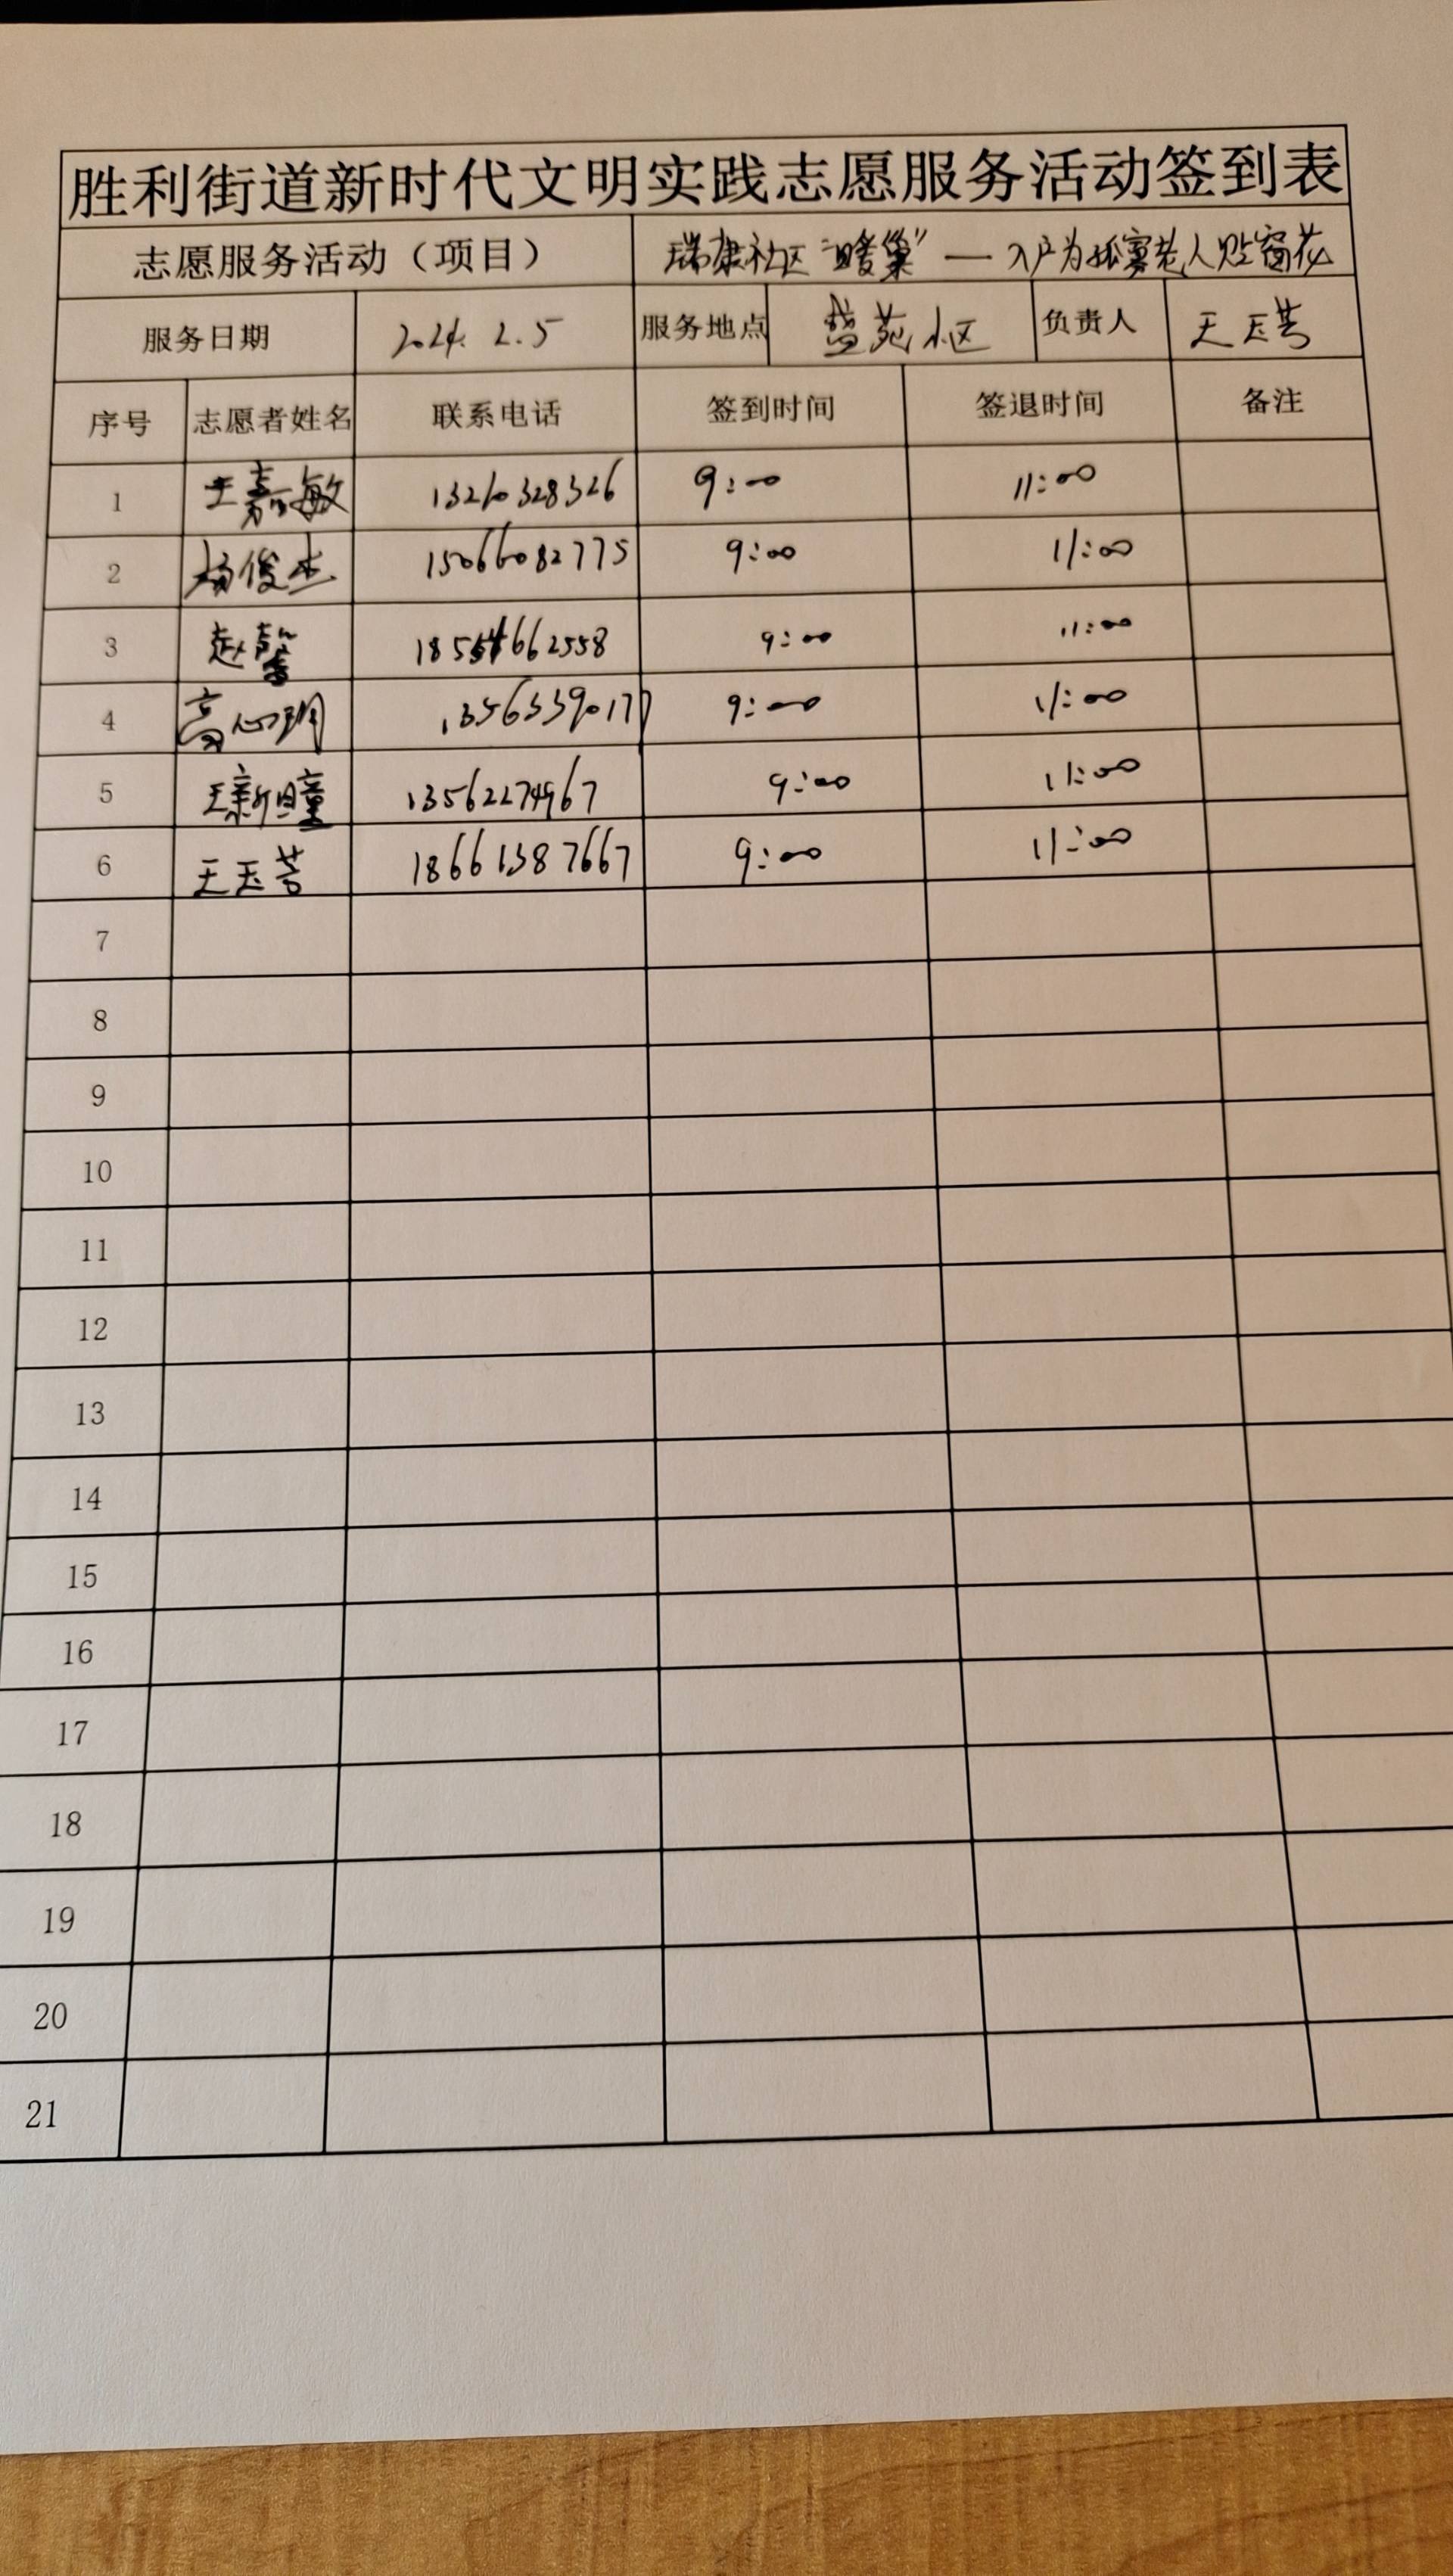 胜利街道新时代文明实践志愿服务活动签到表
志愿服务活动（项目） 瑞康社区“暖巢”— 入户为孤寡老人贴窗花
服务日期 2024. 2. 5 服务地点 盛苑小区 负责人 王玉芸
序号 志愿者姓名 联系电话 签到时间 签退时间 备注
1 王嘉敏 13210328326 9:00 11:00
2 杨俊杰 15066082775 9:00 11:00
3 赵馨 18554662558 9:00 11:00
4 高心玥 13563390177 9:00 11:00
5 王新瞳 13562274967 9:00 11:00
6 王玉芸 18661387667 9:00 11:00
7
8
9
10
11
12
13
14
15
16
17
18
19
20
21